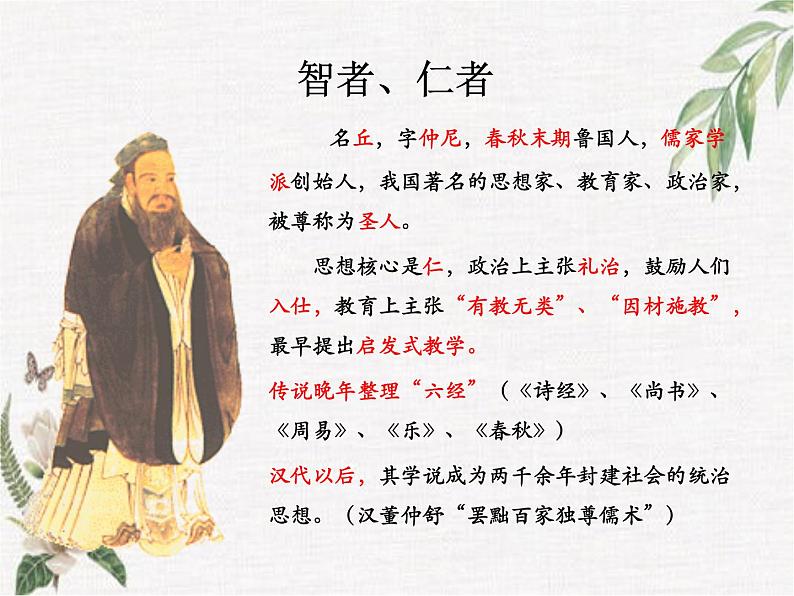 智者、仁者
名丘，字仲尼，春秋末期鲁国人，儒家学
派创始人，我国著名的思想家、教育家、政治家，
被尊称为圣人。
思想核心是仁，政治上主张礼治，鼓励人们
入仕，教育上主张“有教无类”、“因材施教”，
最早提出启发式教学。
传说晚年整理“六经”（《诗经》、《尚书》、
《周易》、《乐》、《春秋》）
汉代以后，其学说成为两千余年封建社会的统治
思想。（汉董仲舒“罢黜百家独尊儒术”）